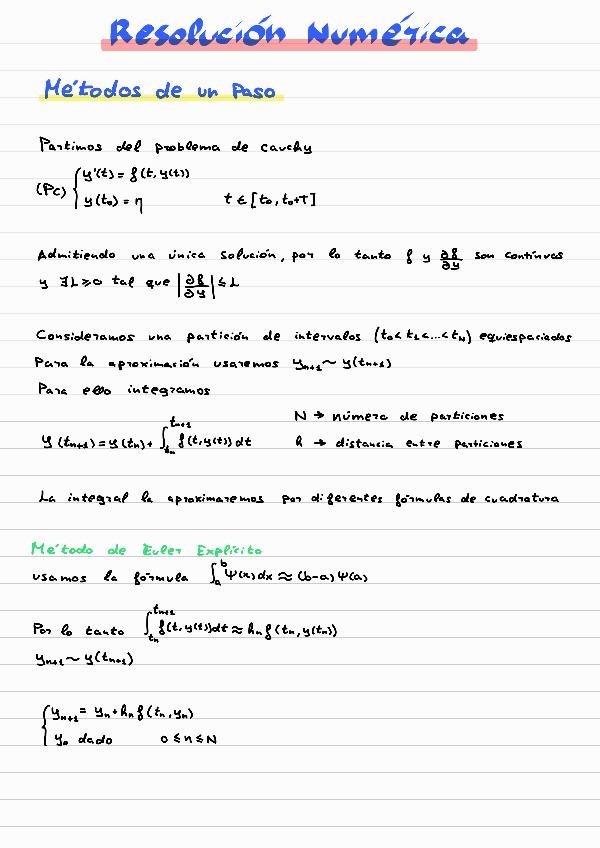 Resolución Numérica
Métodos de un Paso
Partimos del problema de cauchy
(Pc) { y'(t) = f(t, y(t))
y(t₀) = η t ∈ [t₀, t₀+T]
Admitiendo una única solución, por lo tanto f y ∂f/∂y son continuas
y ∃L≥0 tal que |∂f/∂y| ≤ L
Consideramos una partición de intervalos (t₀<t₁<...<t_N) equiespaciados
Para la aproximación usaremos y_{n+1} ~ y(t_{n+1})
Para ello integramos
N → número de particiones
y(t_{n+1}) = y(t_n) + ∫_{t_n}^{t_{n+1}} f(t, y(t)) dt h → distancia entre particiones
La integral la aproximaremos por diferentes fórmulas de cuadratura
Método de Euler Explícito
usamos la fórmula ∫_a^b Ψ(x) dx ≈ (b-a) Ψ(a)
Por lo tanto ∫_{t_n}^{t_{n+1}} f(t, y(t)) dt ≈ h_n f(t_n, y(t_n))
y_{n+1} ~ y(t_{n+1})
{ y_{n+1} = y_n + h_n f(t_n, y_n)
y₀ dado 0 ≤ n ≤ N